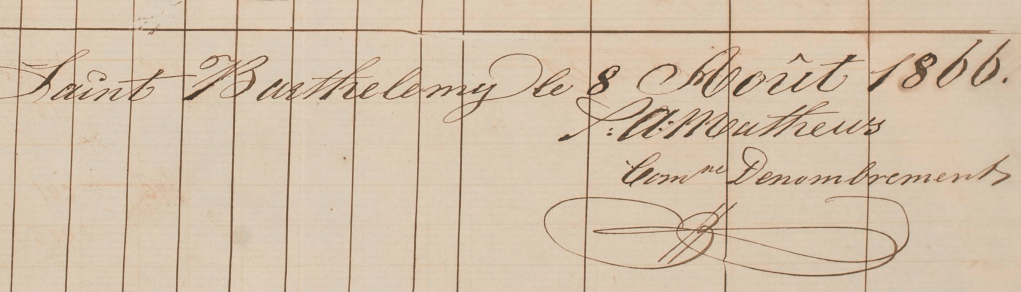 Saint Barthelemy le 8 Août 1866.
P: A: Mathews
Com^re Denombrement